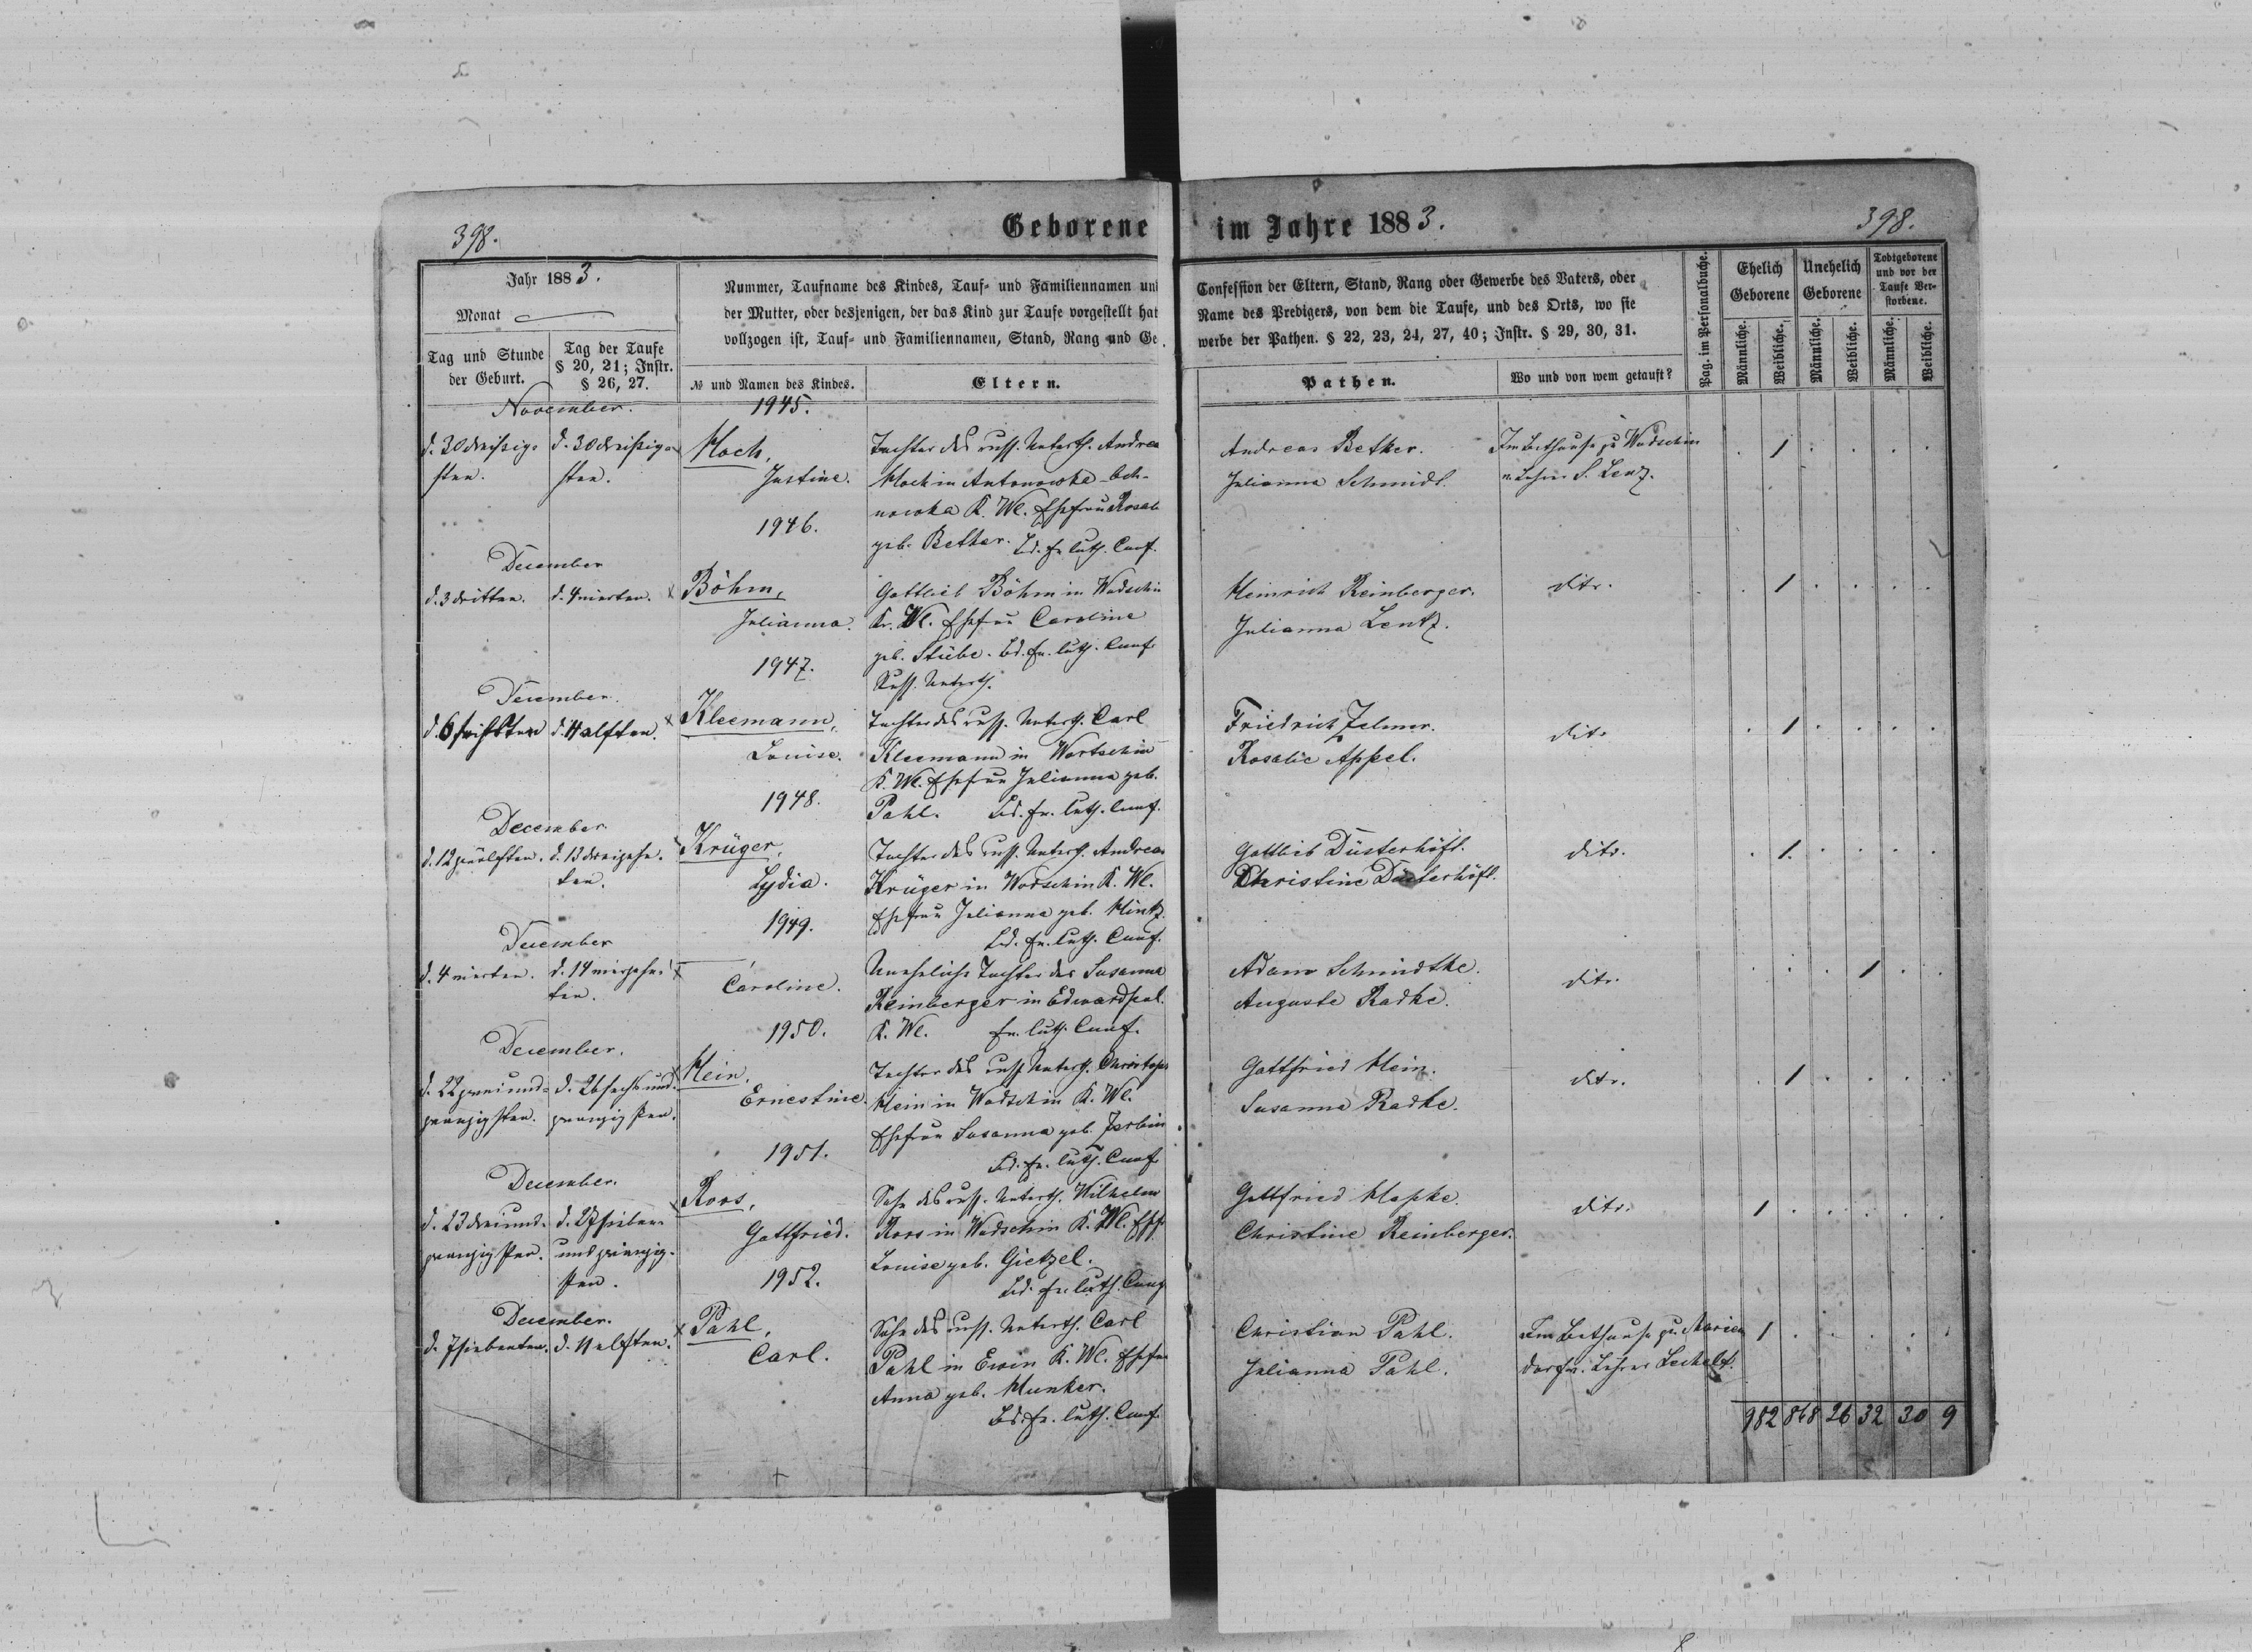 398.
Geborene im Jahre 1883.
398.
Jahr 1883.
Monat
Tag und Stunde
der Geburt.
Tag der Taufe
§ 20, 21; Instr.
§ 26, 27.
Nummer, Taufname des Kindes, Tauf- und Familiennamen un
der Mutter, oder desjenigen, der das Kind zur Taufe vorgestellt hat
vollzogen ist, Tauf- und Familiennamen, Stand, Rang und Ge
№ und Namen des Kindes.
Eltern.
Confession der Eltern, Stand, Rang oder Gewerbe des Vaters, oder
Name des Predigers, von dem die Taufe, und des Orts, wo sie
werbe der Pathen. § 22, 23, 24, 27, 40; Instr. § 29, 30, 31.
Pathen.
Wo und von wem getauft?
Pag. im Personalbuche.
Ehelich
Geborene
Unehelich
Geborene
Todtgeborene
und vor der
Taufe Ver-
storbene.
Männliche.
Weibliche.
Männliche.
Weibliche.
Männliche.
Weibliche.
November.
1945.
d. 30 dreißig-
sten.
d. 30 dreißig-
sten.
Hoch,
Justine.
Tochter des russ. Unterth. Andrea
Hoch in Antonowka
nowka K. Wl. Ehefrau Rosal
geb. Bethar. Bd. ev. luth. Conf.
Andreas Betker.
Julianna Schmidt.
Im Bethause zu Wodschin
v. Lehrer S. Lenz.
1
1946.
December
d. 3 dritten.
d. 4 vierten.
x Böhm,
Julianna.
Gottlieb Böhm in Wodschin
Kr. Wl. Ehefrau Caroline
geb. Stübe. Bd. ev. luth. Conf.
Russ. Unterth.
Heinrich Reinberger.
Julianna Lentz.
dito.
1
1947.
December.
d. 6 sechsten
d. 11 elften.
x Kleemann,
Louise.
Tochter des russ. Unterth. Carl
Kleemann in Wortschin
K. Wl. Ehefrau Julianna geb.
Pahl. Bd. ev. luth. Conf.
Friedrich Zelmer.
Rosalie Appel.
dito
1
1948.
December
d. 12 zwölften.
d. 13 dreizehn-
ten.
Krüger,
Lydia.
Tochter des russ. Unterth. Andreas
Krüger in Wodschin K. Wl.
Ehefrau Julianna geb. Hintz.
Bd. ev. luth. Conf.
Gottlieb Düsterhöft.
Christine Düsterhöft.
dito.
1.
1949.
December
d. 4 vierten.
d. 14 vierzehn-
ten.
x
Caroline.
Uneheliche Tochter der Susanna
Reinberger in Edwardpol.
K. Wl. ev. luth. Conf.
Adam Schmidtke.
Auguste Radke.
dito.
1
1950.
December.
d. 22 zweiund-
zwanzigsten.
d. 26 sechsund-
zwanzigsten.
Hein,
Ernestine.
Tochter des russ. Unterth. Christoph
Hein in Wodschin K. Wl.
Ehefrau Susanna geb. Jerbin
Bd. ev. luth. Conf.
Gottfried Hein.
Susanna Radke.
dito.
1
1951.
December.
d. 23 dreiund-
zwanzigsten.
d. 27 sieben-
undzwanzig-
sten.
x Roos,
Gottfried.
Sohn des russ. Unterth. Wilhelm
Roos in Wodschin K. Wl. Ehf.
Louise geb. Gietzel.
Bd. ev. luth. Conf.
Gottfried Hapke.
Christine Reinberger.
dito.
1
1952.
December.
d. 7 siebenten.
d. 11 elften.
x Pahl,
Carl.
Sohn des russ. Unterth. Carl
Pahl in Ewin K. Wl. Ehefrau
Anna geb. Hunker.
Bd. ev. luth. Conf.
Christian Pahl.
Julianna Pahl.
Im Bethause zu Marien
dorf v. Lehrer Leckelt.
1
982 868 26 32 30 9